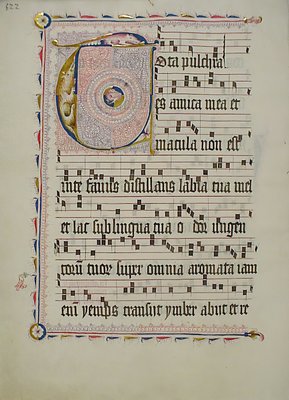 622
Tota pulchra
es amica mea et
macula non est
in te fauus distillans labia tua mel
et lac sub lingua tua o dor ungen
toru tuor super omnia aromata iam
eni yemps transiit ymber abiit et re